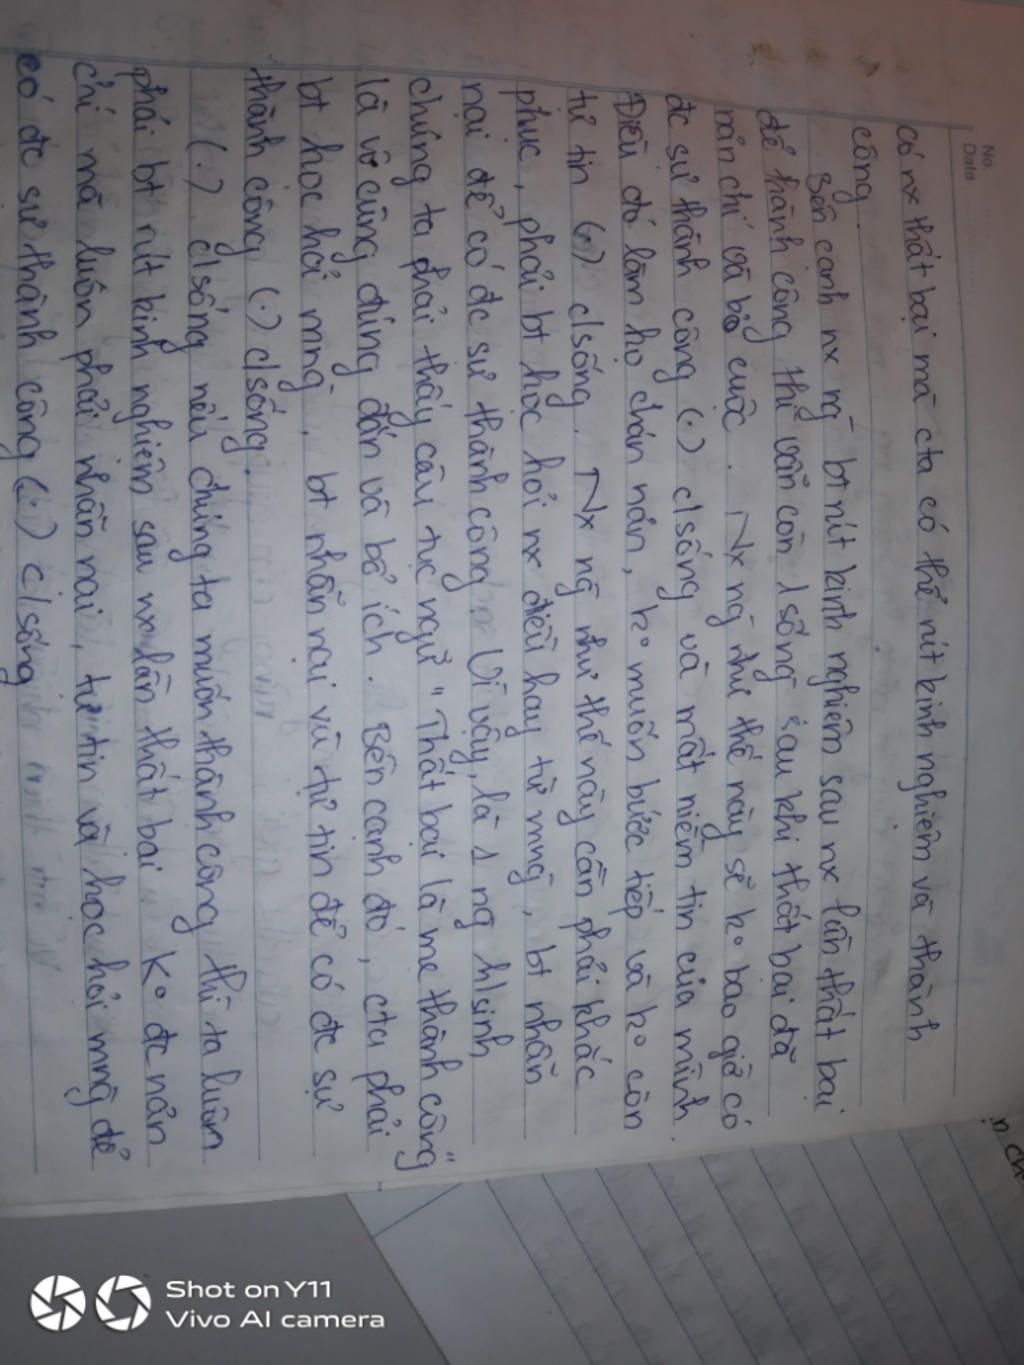 No.
Date
có nx thất bại mà cta có thể rút kinh nghiệm và thành
công.
Bên cạnh nx ng̃ bt rút kinh nghiệm sau nx lần thất bại
để thành công thì vẫn còn 1 số ng̃ sau khi thất bại đã
nản chí và bỏ cuộc. Nx ng̃ như thế này sẽ ko bao giờ có
đc sự thành công (.) c/sống và mất niềm tin của mình.
Điều đó làm họ chán nản, ko muốn bước tiếp và ko còn
tự tin (.) c/sống. Nx ng̃ như thế này cần phải khắc
phục, phải bt học hỏi nx điều hay từ mng̃, bt nhẫn
nại để có đc sự thành công. Vì vậy, là 1 ng̃ h/sinh
chúng ta phải thấy câu tục ngữ "Thất bại là mẹ thành công"
là vô cùng đúng đắn và bổ ích. Bên cạnh đó, cta phải
bt học hỏi mng̃, bt nhẫn nại và tự tin để có đc sự
thành công (.) c/sống.
(.) c/sống nếu chúng ta muốn thành công thì ta luôn
phải bt rút kinh nghiệm sau nx lần thất bại Ko đc nản
chí mà luôn phải nhẫn nại, tự tin và học hỏi mng̃ để
có đc sự thành công (.) c/sống
Shot on Y11
Vivo AI camera